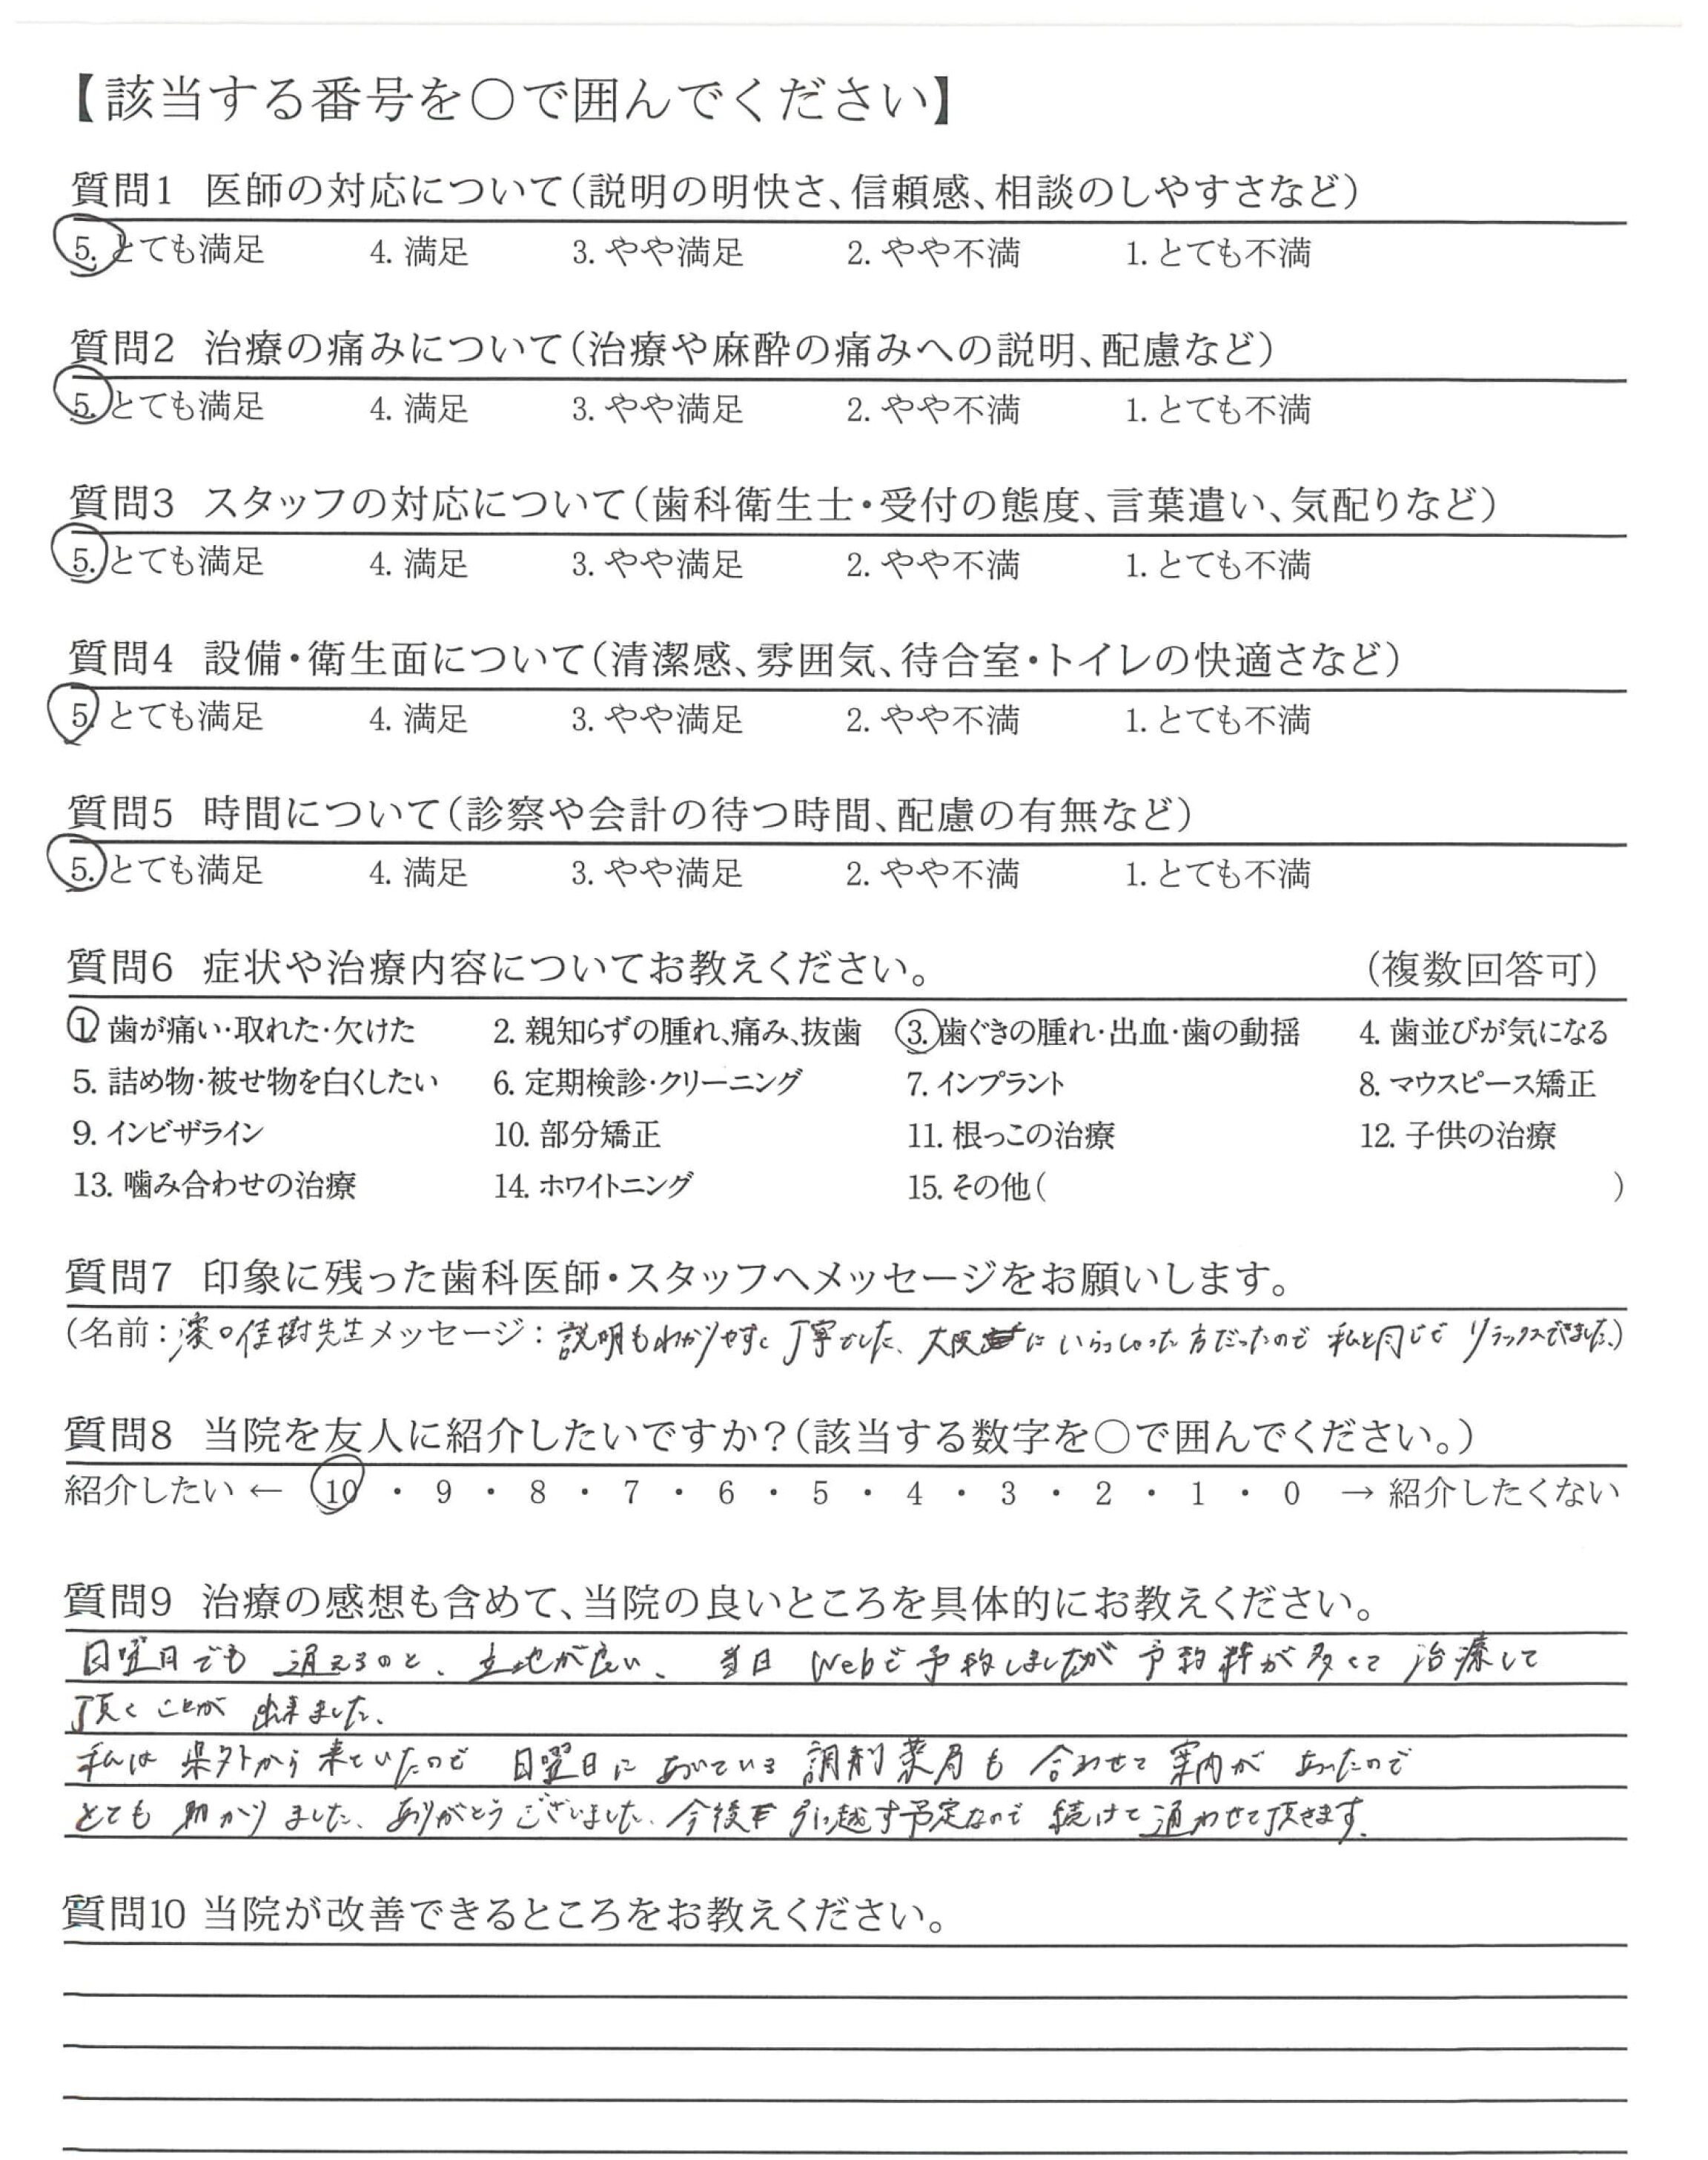 【該当する番号を○で囲んでください】
質問1 医師の対応について(説明の明快さ、信頼感、相談のしやすさなど)
5. とても満足 4. 満足 3. やや満足 2. やや不満 1. とても不満
質問2 治療の痛みについて(治療や麻酔の痛みへの説明、配慮など)
5. とても満足 4. 満足 3. やや満足 2. やや不満 1. とても不満
質問3 スタッフの対応について(歯科衛生士・受付の態度、言葉遣い、気配りなど)
5. とても満足 4. 満足 3. やや満足 2. やや不満 1. とても不満
質問4 設備・衛生面について(清潔感、雰囲気、待合室・トイレの快適さなど)
5. とても満足 4. 満足 3. やや満足 2. やや不満 1. とても不満
質問5 時間について(診察や会計の待つ時間、配慮の有無など)
5. とても満足 4. 満足 3. やや満足 2. やや不満 1. とても不満
質問6 症状や治療内容についてお教えください。 (複数回答可)
1. 歯が痛い・取れた・欠けた 2. 親知らずの腫れ、痛み、抜歯 3. 歯ぐきの腫れ・出血・歯の動揺 4. 歯並びが気になる
5. 詰め物・被せ物を白くしたい 6. 定期検診・クリーニング 7. インプラント 8. マウスピース矯正
9. インビザライン 10. 部分矯正 11. 根っこの治療 12. 子供の治療
13. 噛み合わせの治療 14. ホワイトニング 15. その他( )
質問7 印象に残った歯科医師・スタッフへメッセージをお願いします。
(名前:濱口佳樹先生 メッセージ:説明もわかりやすく丁寧でした、大阪にいらっしゃった方だったので 私と同じで リラックスできました。)
質問8 当院を友人に紹介したいですか?(該当する数字を○で囲んでください。)
紹介したい ← 10 ・ 9 ・ 8 ・ 7 ・ 6 ・ 5 ・ 4 ・ 3 ・ 2 ・ 1 ・ 0 → 紹介したくない
質問9 治療の感想も含めて、当院の良いところを具体的にお教えください。
日曜日でも 通えるのと、立地が良い、 当日 Webで予約しましたが 予約枠が多くて 治療して
頂くことが 出来ました。
私は 県外から来ていたので 日曜日に あいている 調剤薬局も 合わせて 案内が あったので
とても 助かりました、ありがとうございました。今後 引っ越す予定なので 続けて通わせて頂きます。
質問10 当院が改善できるところをお教えください。